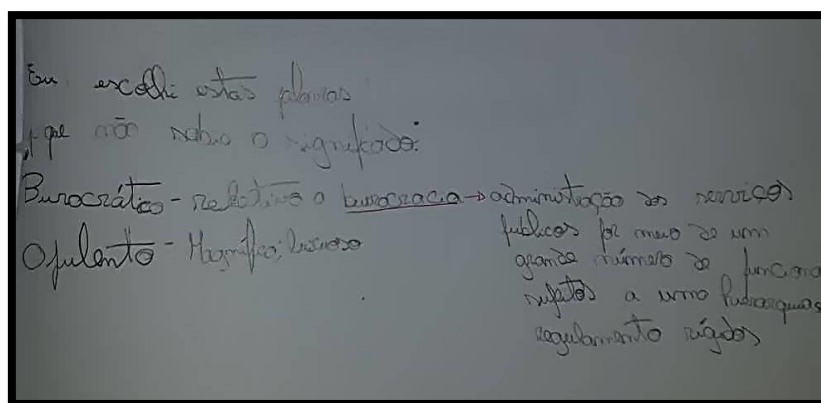 Eu escolhi estas
que não sabia o significado:
Burocrático - Relativo a burocracia → administração dos serviços
públicos por meio de um
grande número de funciona
sujeitos a uma
regulamento rígidos
Opulento - Magnífico; luxuoso